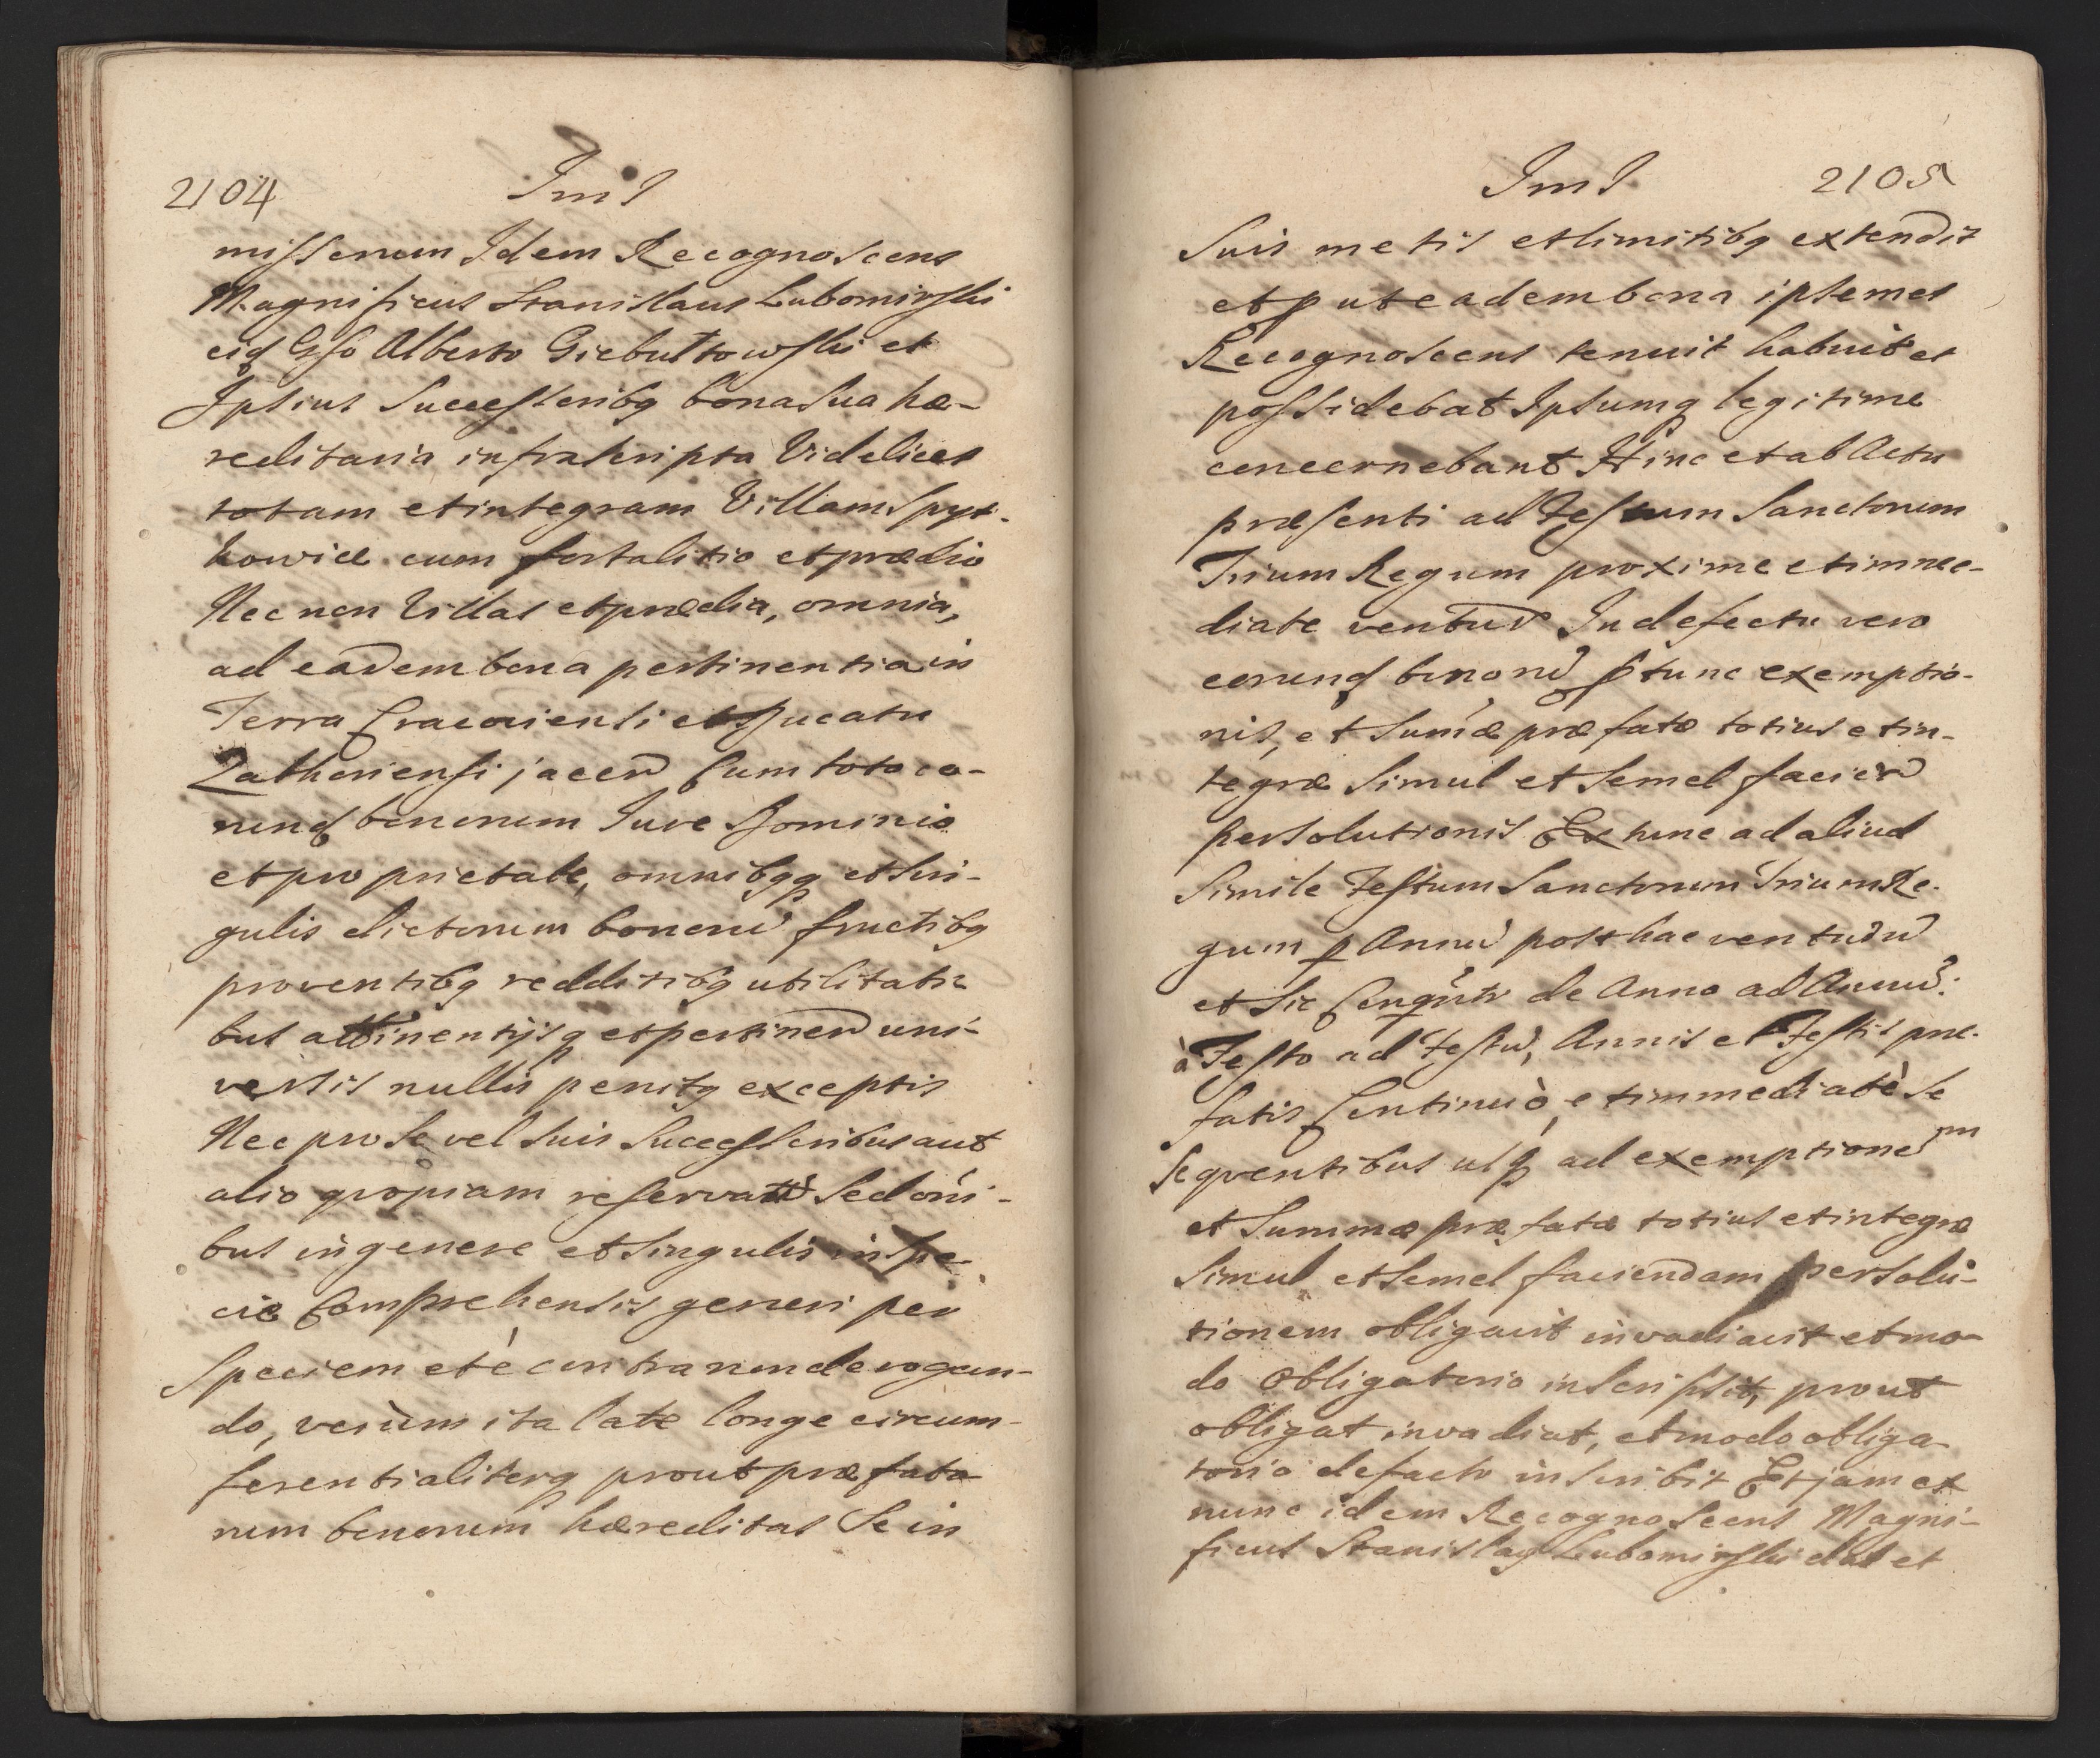 2104
ImI
missorum Idem Recognoscens
Magnificus Stanislaus Lubomirski
eid Gso Alberto Giebułtowski et
Ipsius Successoribq bona Sua hæ-
reditaria infrascripta Videlicet
totam et integram Villam Spyt-
kowice cum fortalitio et prædio
Nec non Villas et prædia, omnia,
ad eadem bona pertinentia in
Terra Cracoviensi et Ducatu
Zathoriensi jacen Cum toto eo-
rund bonorum Jure Dominio
et proprietate, omnibqq et Sin-
gulis dictorum bonorū fructibq
proventibq redditibq utilitati-
bus attinentijsq et pertinen uni-
versis nullis penitq exceptis
Nec pro Se vel Suis Successoribus aut
alio quopiam reservatū Sed omni-
bus in genere et Singulis in Spe-
cie Comprehensis generi per
Speciem et è contra non derogan-
do, verùm ita late longe circum-
ferentialiterq prout præfato-
rum bonorum hæreditas Se in
ImI
2105
Suis metis et limitibq extendit
et put eadem bona ipsemet
Recognoscens tenuit habuit et
possidebat Ipsumq legitime
concernebant Hinc et ab Actu
præsenti ad Festum Sanctorum
Trium Regum proxime et imme-
diate ventur In defectu vero
eorund bonorū p tunc exemptio-
nis, et Sumæ præfatæ totius et in-
tegræ Simul et Semel facien
persolutionis Ex tunc ad aliud
Simile Festum Sanctorum Trium Re-
gum p Annū post hac venturū
et Sic Conqntr de Anno ad Annū:
à Festo ad Festū, Annis et Festis præ-
fatis Continuò, et immediatè Se
Seqventibus usq ad exemptionem
et Summæ præfatæ totius et integræ
Simul et Semel faciendam persolu-
tionem obligavit invadiavit et mo-
do Obligatorio inscripsit, prout
obligat invadiat, et modo obliga-
torio de facto inscribit Et jam ex
nunc idem Recognoscens Magni-
ficus Stanislaq Lubomirski dat et